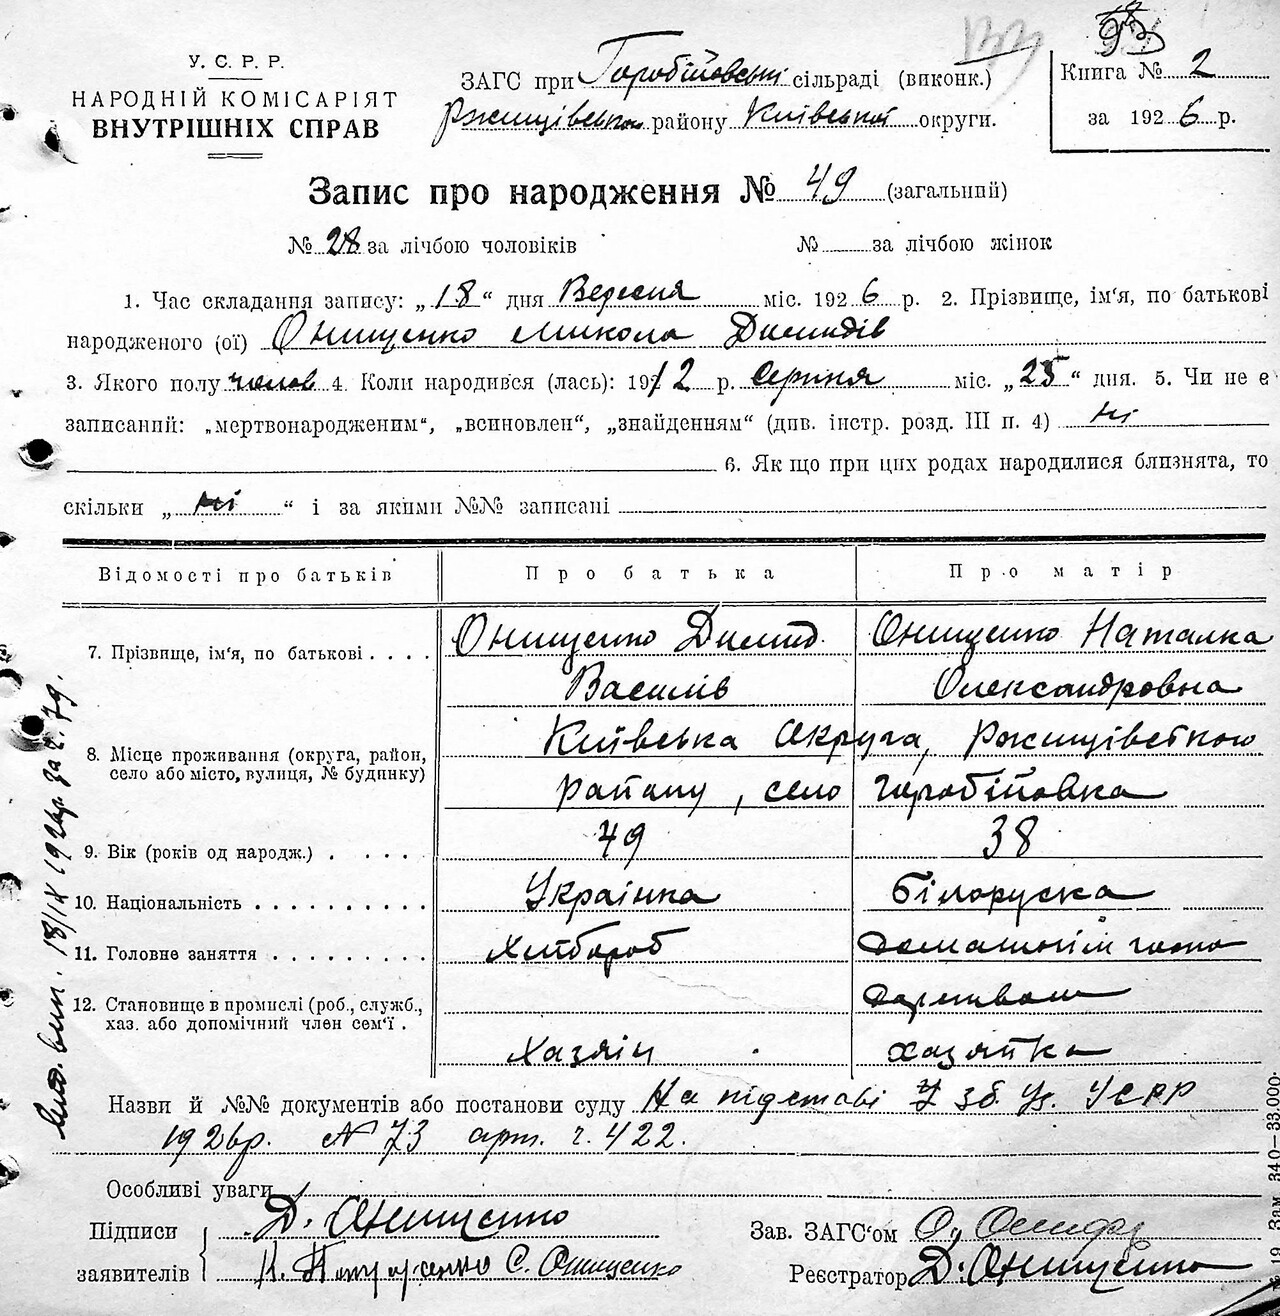 У. С. Р. Р.
НАРОДНІЙ КОМІСАРІЯТ
ВНУТРІШНІХ СПРАВ
ЗАГС при Горобіївській сільраді (виконк.)
Ржищівського району Київської округи.
Книга № 2
за 1926 р.
Запис про народження № 49 (загальний)
№ 28 за лічбою чоловіків № за лічбою жінок
1. Час складання запису: „18“ дня Вересня міс. 1926 р. 2. Прізвище, ім'я, по батькові
народженого (ої) Онищенко Микола Дамидів
3. Якого полу чолов 4. Коли народився (лась): 1912 р. серпня міс. „25“ дня. 5. Чи не є
записаний: „мертвонародженим“, „всиновлен“, „знайденням“ (див. інстр. розд. III п. 4) ні
6. Як що при цих родах народилися близнята, то
скільки „ні“ і за якими №№ записані
Відомості про батьків Про батька Про матір
7. Прізвище, ім'я, по батькові . . . . Онищенко Дамид. Онищенко Наталка
Василів Олександровна
8. Місце проживання (округа, район,
село або місто, вулиця, № будинку)
Київська округа, Ржищівського
району, село Горобіївка
9. Вік (років од народж.) . . . . . 49 38
10. Національність . . . . . . . . . . Українка Білоруска
11. Головне заняття . . . . . . . . . Хлібороб Домашнім госпо
дарством
12. Становище в промислі (роб., служб.,
хаз. або допомічний член сем'ї .
Хазяїн хазяйка
Назви й №№ документів або постанови суду На підставі З зб. Уз. УСРР
1926р. N 73 арт. ч. 422.
Особливі уваги
Підписи
заявителів
Д. Онищенко
С. Онищенко
Зав. ЗАГС'ом
Реєстратор Д. Онищенко
18/IX 1926р. за ч. 79.
19 Зам. 340—33.000.